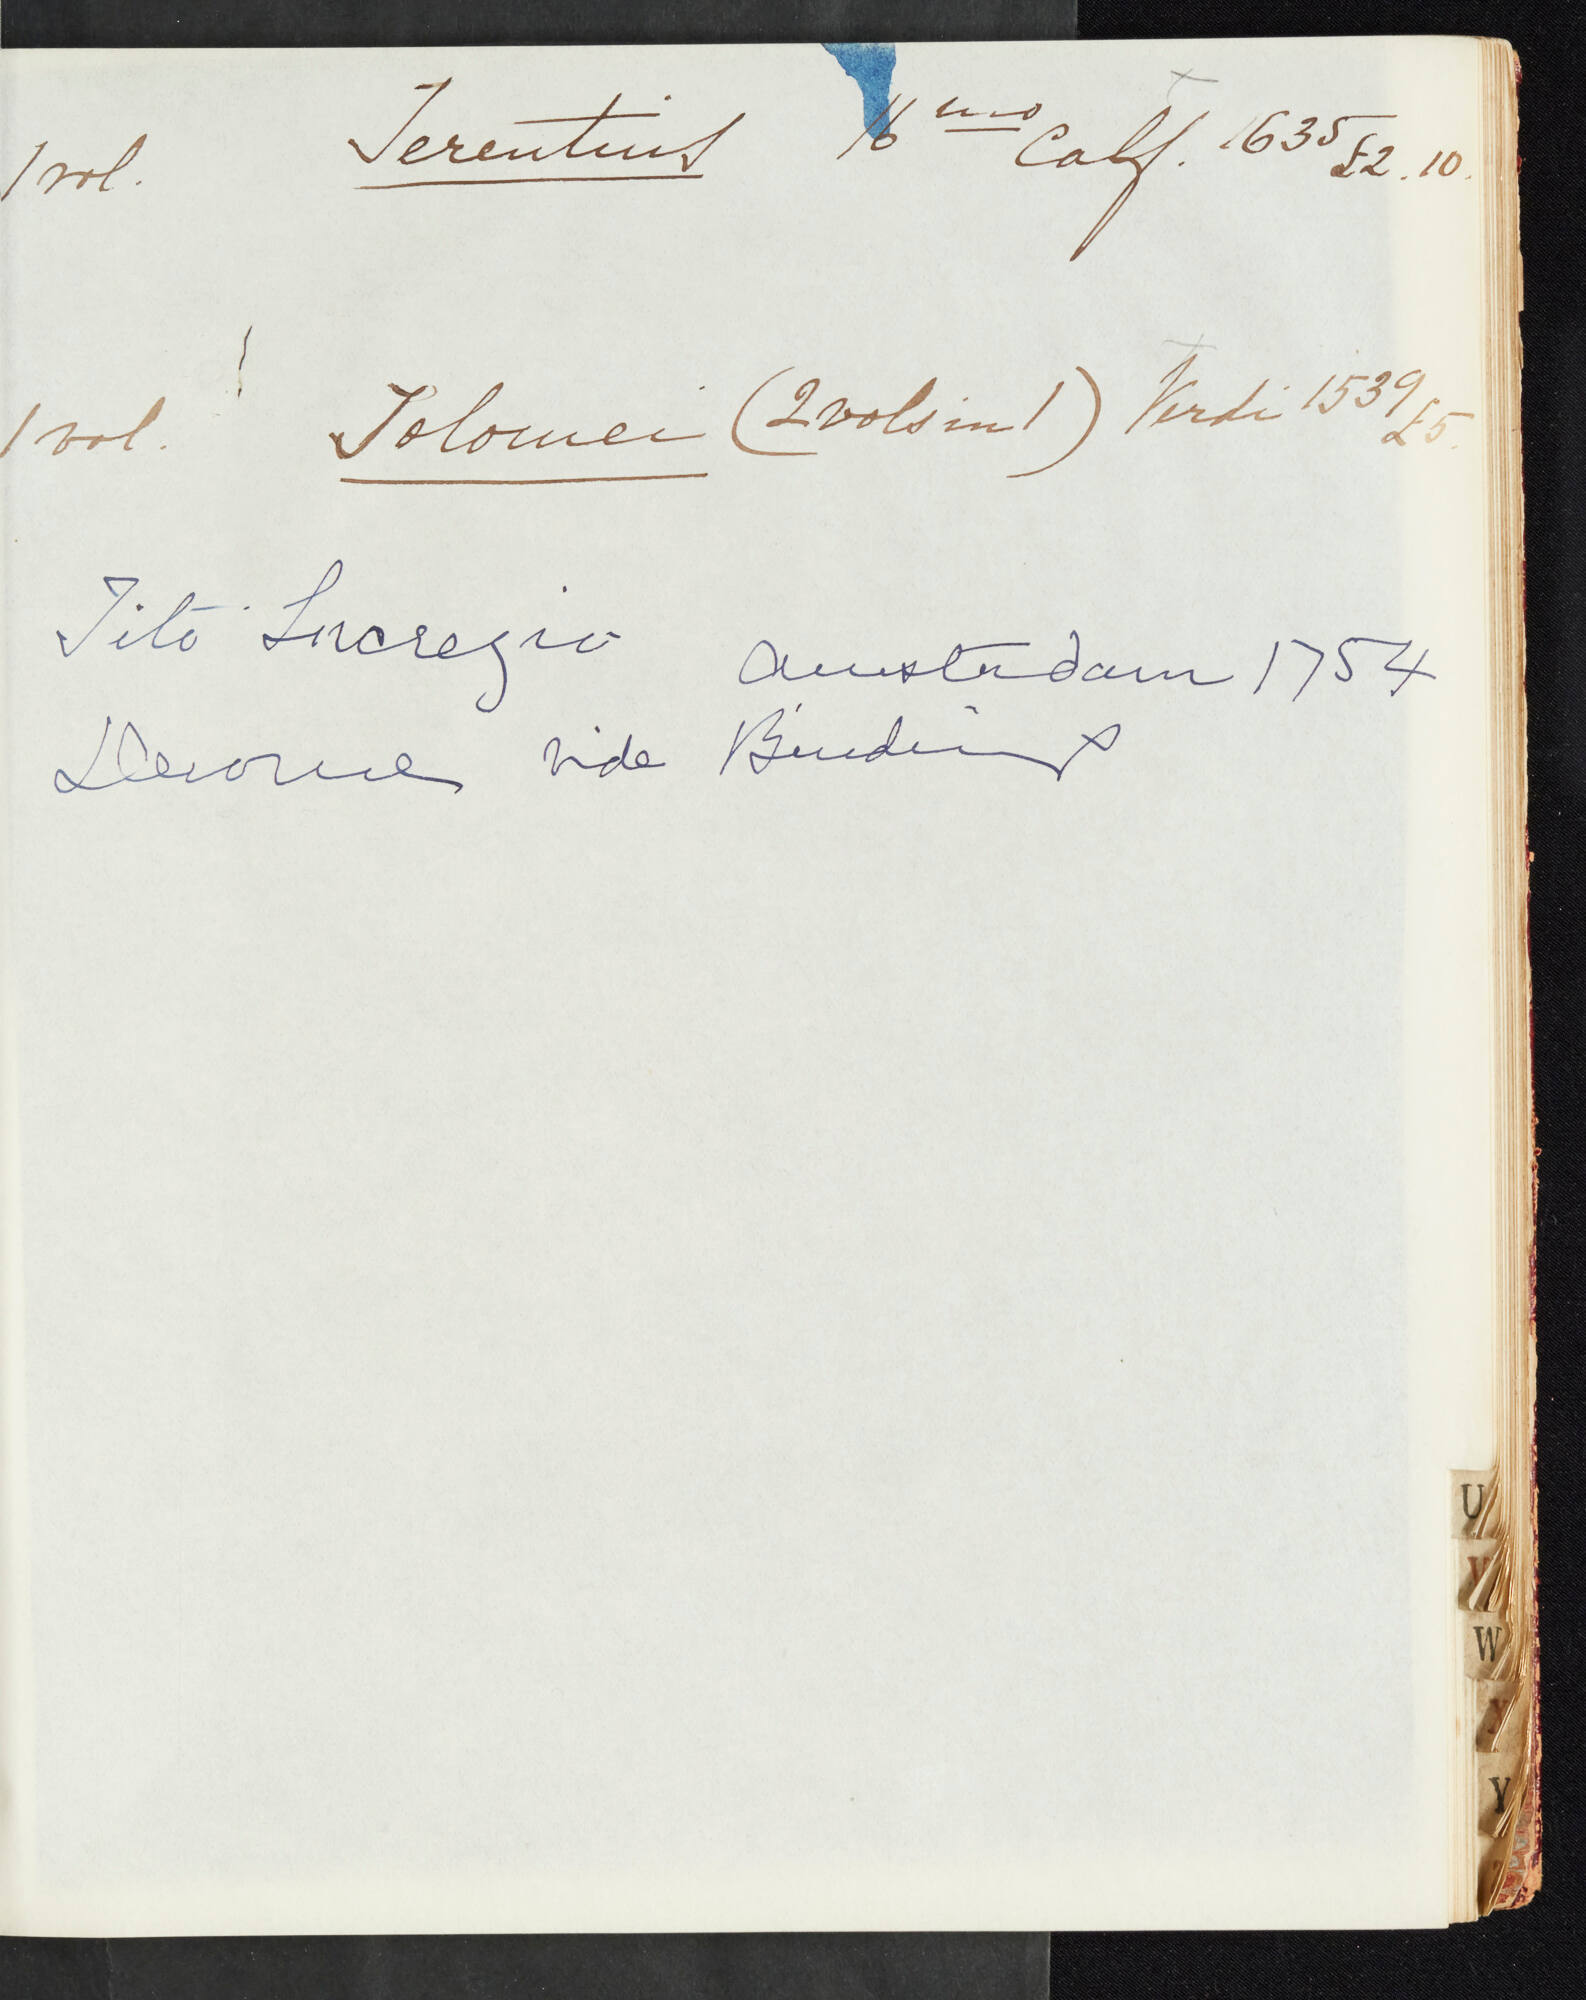 1 vol. Terentius 16mo Calf. 1635 £2.10.
1 vol. Tolomei (2 vols in 1) Verdi 1539 £5.
Tito Lucrezio Amsterdam 1754
Derome vide Bindings
U
V
W
X
Y